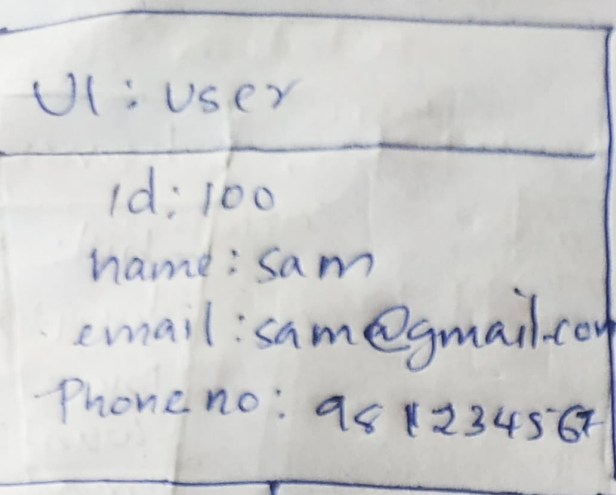 U1: User
id: 100
name: sam
email: sam@gmail.com
Phone no: 981234567